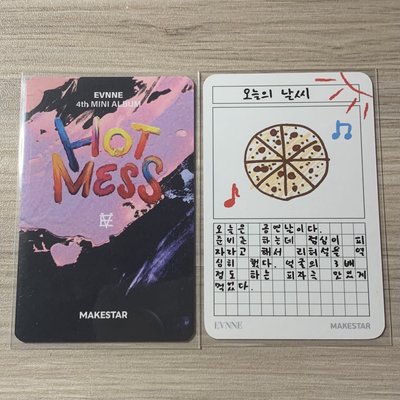 EVNNE
4th MINI ALBUM
HOT
MESS
MAKESTAR
오늘의 날씨
오늘은 공연날이다.
준비를 하는데 점심이 피
자라고 해서 리허설을 열
심히 했다. 얼굴의 3배
정도 하는 피자를 맛있게
먹었다.
EVNNE
MAKESTAR